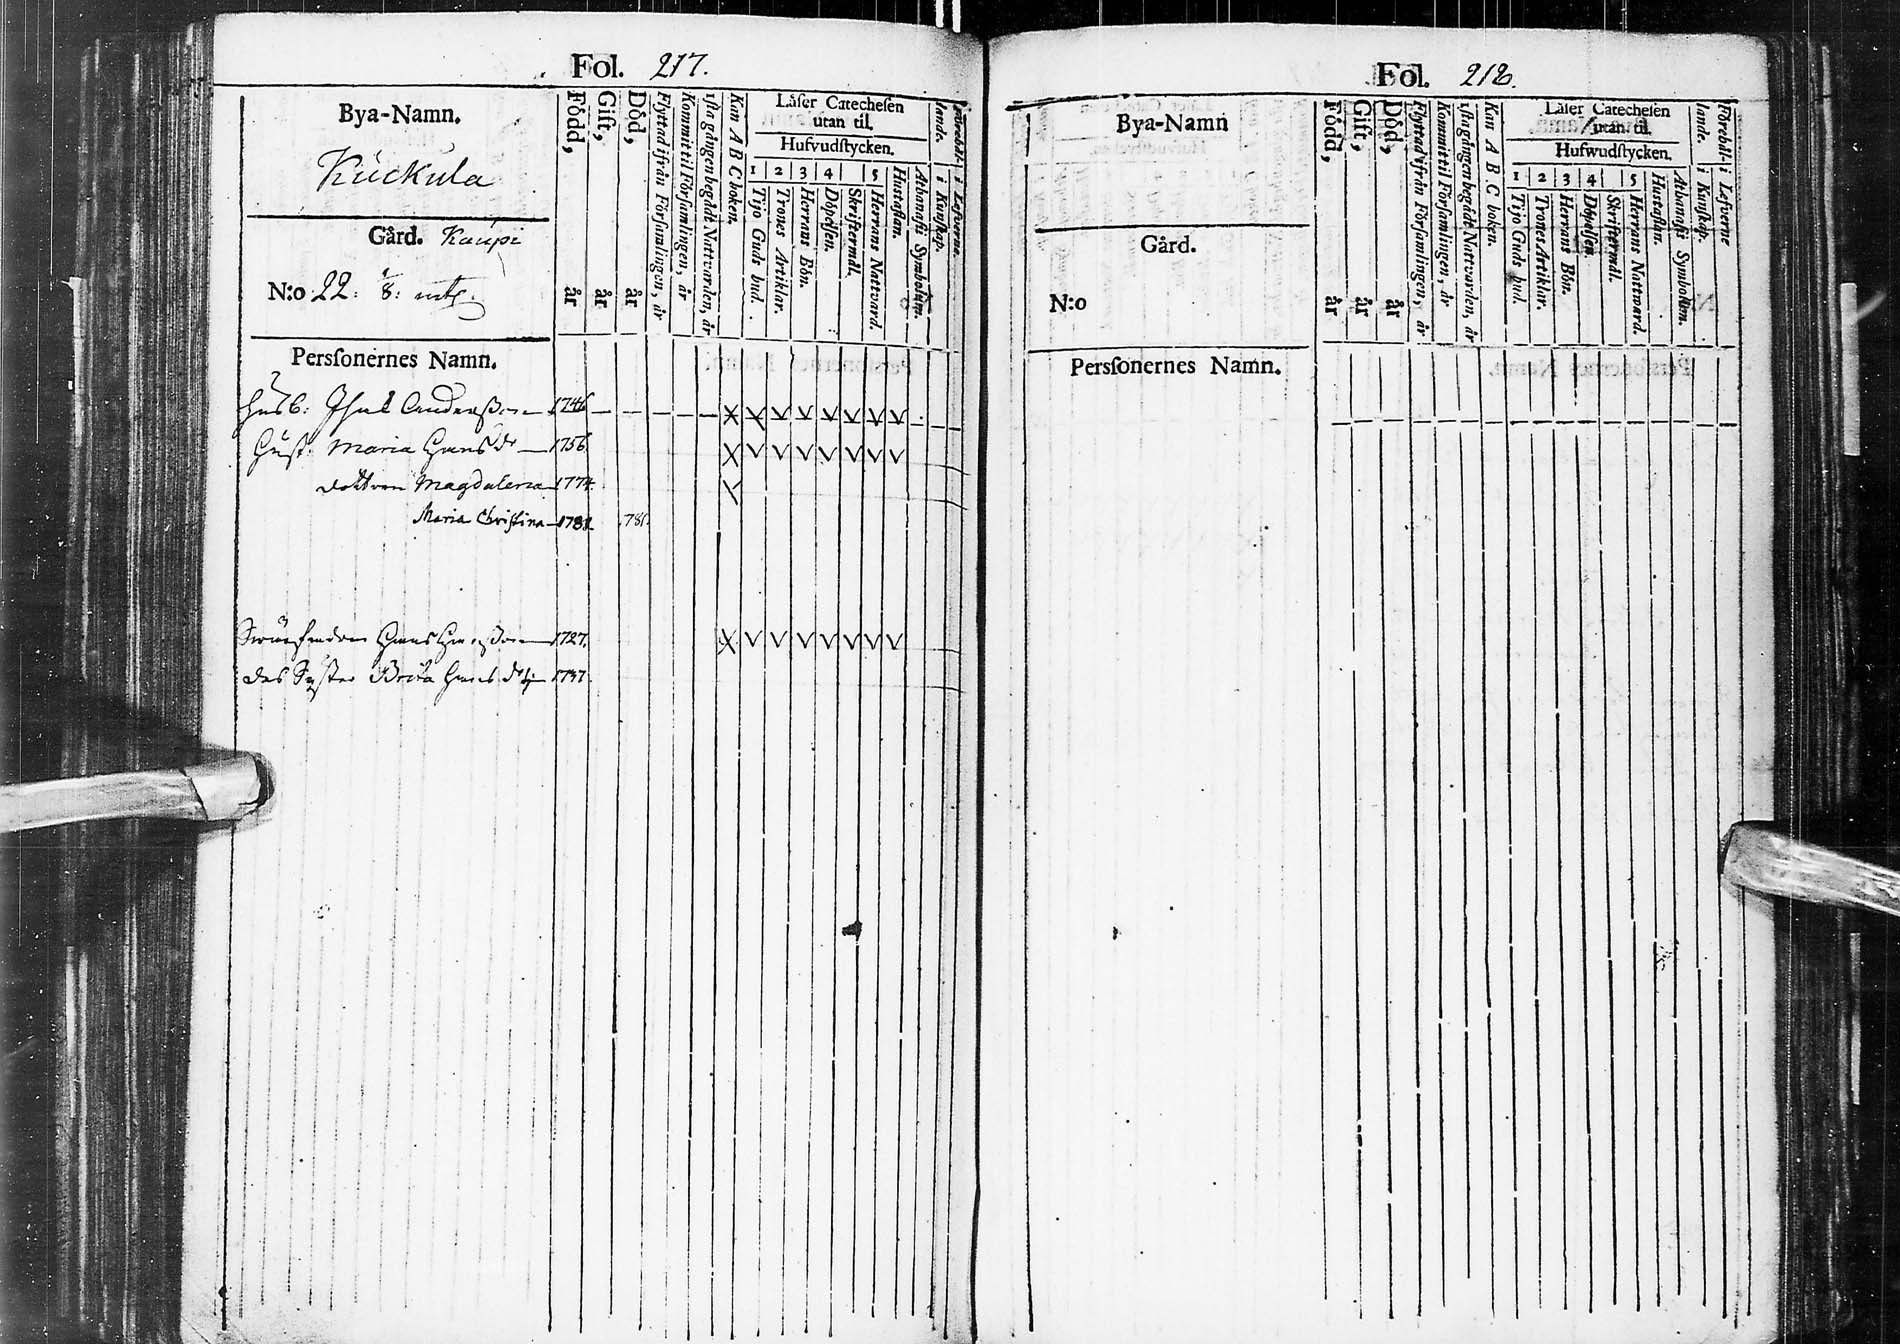 Fol. 217.
Bya-Namn.
Kuckula
Gård. Kaupi
N:o 22.
Född, år
Gift, år
Död, år
Flyttad ifrån Församlingen, år
Kommit til Församlingen, år
1sta gången begådt Nattvarden, år
Kan A B C boken.
Läser Catechesen
utan til.
Hufvudstycken.
1 2 3 4 5
Tijo Guds bud.
Trones Artiklar.
Herrans Bön.
Döpelsen.
Skriftermål.
Herrans Nattvard.
Hustaflan.
Athanasii Symbolum.
Förehål-
lande.
i Kunskap.
i Lefverne.
Personernes Namn.
Husb: Andersson 1746
Hust: Maria Hansdr 1756.
dottren Magdalena 1774.
Maria Christina 1781 781.
Hans 1727.
des Syster Brita Hansdr 1737.
Fol. 218.
Bya-Namn
Gård.
N:o
Född, år
Gift, år
Död, år
Flyttad ifrån Församlingen, år
Kommit til Församlingen, år
1sta gången begådt Nattvarden, år
Kan A B C boken.
Läser Catechesen
utan til.
Hufwudstycken.
1 2 3 4 5
Tijo Guds bud.
Trones Artiklar.
Herrans Bön.
Döpelsen.
Skriftermål.
Herrans Nattvard.
Hustaflan.
Athanasii Symbolum.
Förehål-
lande.
i Kunskap.
i Lefverne
Personernes Namn.